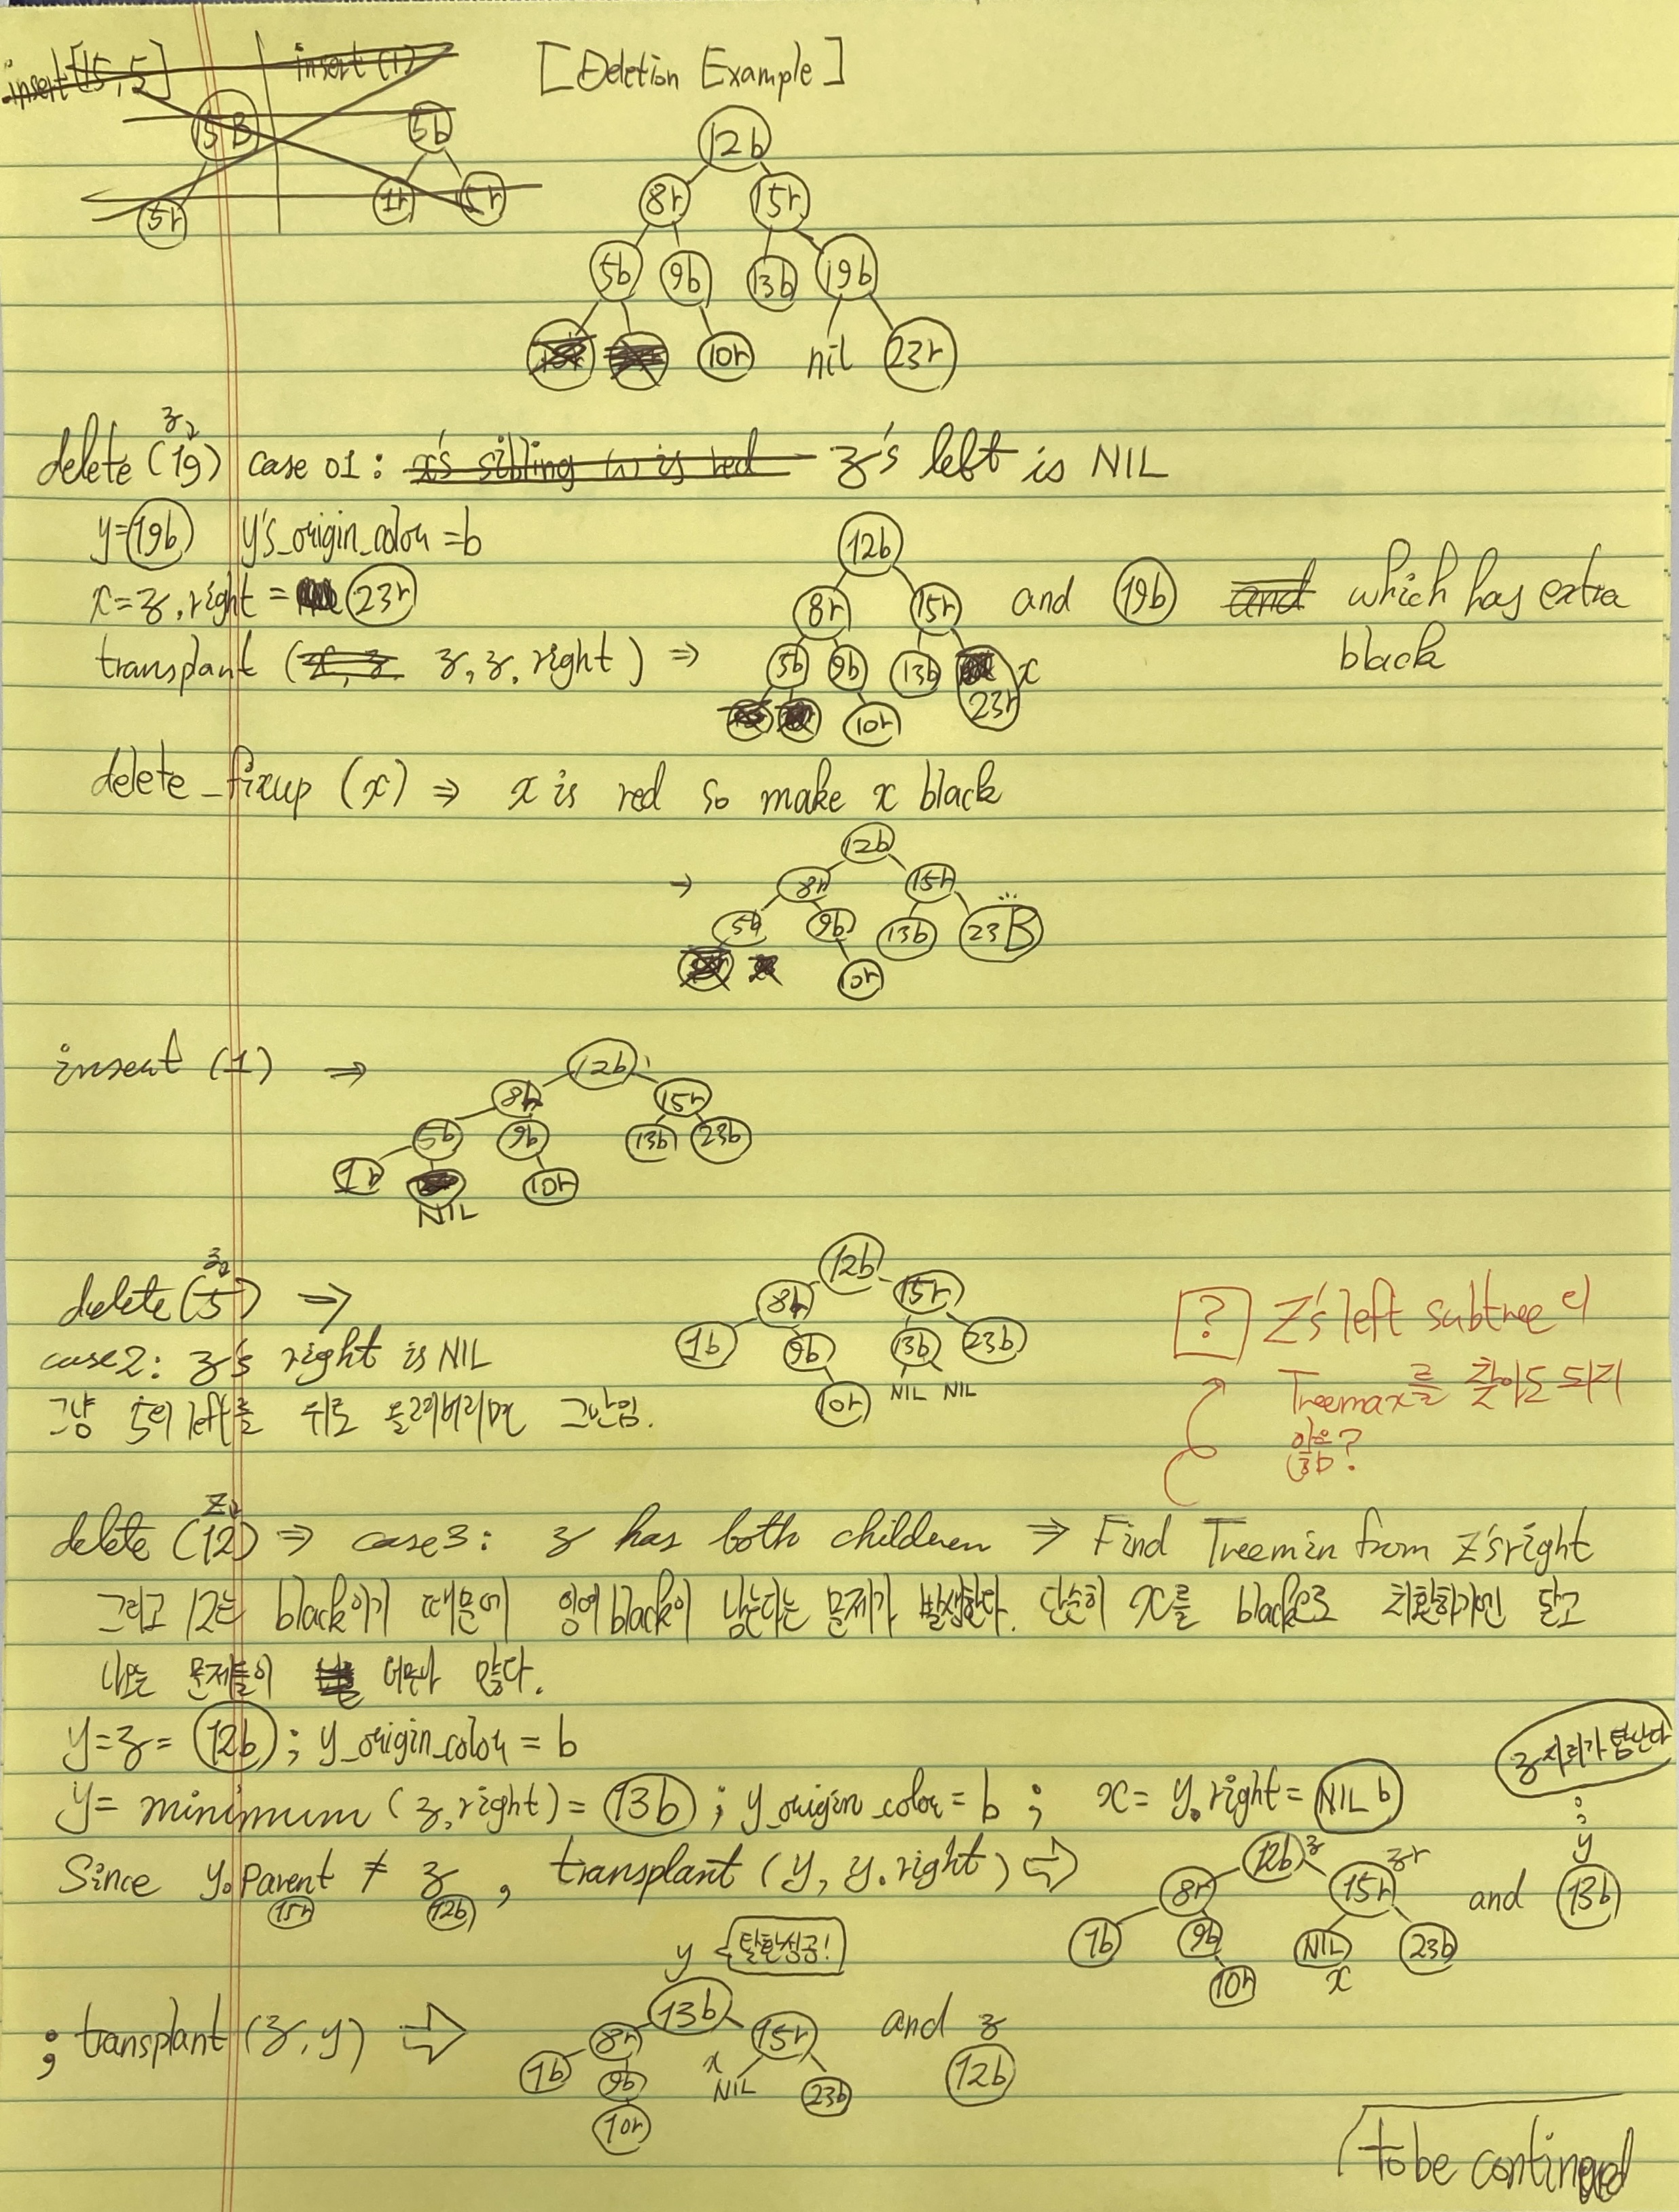 insert[15,5] insert(1) [Deletion Example]
15B 5b 12b
5r 1r 5r 8r 15r
5b 9b 13b 19b
10r nil 23r
z
delete(19) case 01: x's sibling w is red z's left is NIL
y=19b y's_origin_color=b
x=z.right= 23r
transplant ( z, z.right) ⇒
12b
8r 15r and 19b and which has extra
black
5b 9b 13b x
23r
10r
delete_fixup (x) ⇒ x is red so make x black
12b
→ 8r 15r
5b 9b 13b 23B
10r
insert (1) ⇒ 12b
8r 15r
5b 9b 13b 23b
1r 10r
NIL
z
delete(5) ⇒
case2: z's right is NIL
그냥 5의 left를 위로 올려버리면 그만임.
12b
8r 15r
1b 9b 13b 23b
10r NIL NIL
? Z's left subtree의
Treemax를 찾아도 되지
않음?
z
delete (12) ⇒ case3: z has both children ⇒ Find Treemin from z's right
그리고 12는 black이기 때문에 잉여 black이 남는다는 문제가 발생한다. 단순히 x를 black으로 치환하기엔 달고
나오는 문제들이 너무나 많다.
y=z= 12b ; y_origin_color = b
z자리가 탐난다
y= minimum (z.right)= 13b ; y_origin_color= b ; x= y.right= NIL b
Since y.parent ≠ z , transplant (y, y.right) ⇨
15r 12b
12b z
8r 15r and y 13b
1b 9b NIL 23b
10r x
y 탈환성공!
; transplant (z, y) ⇨ 13b
8r 15r and z
1b 9b x NIL 23b 12b
10r
to be continued